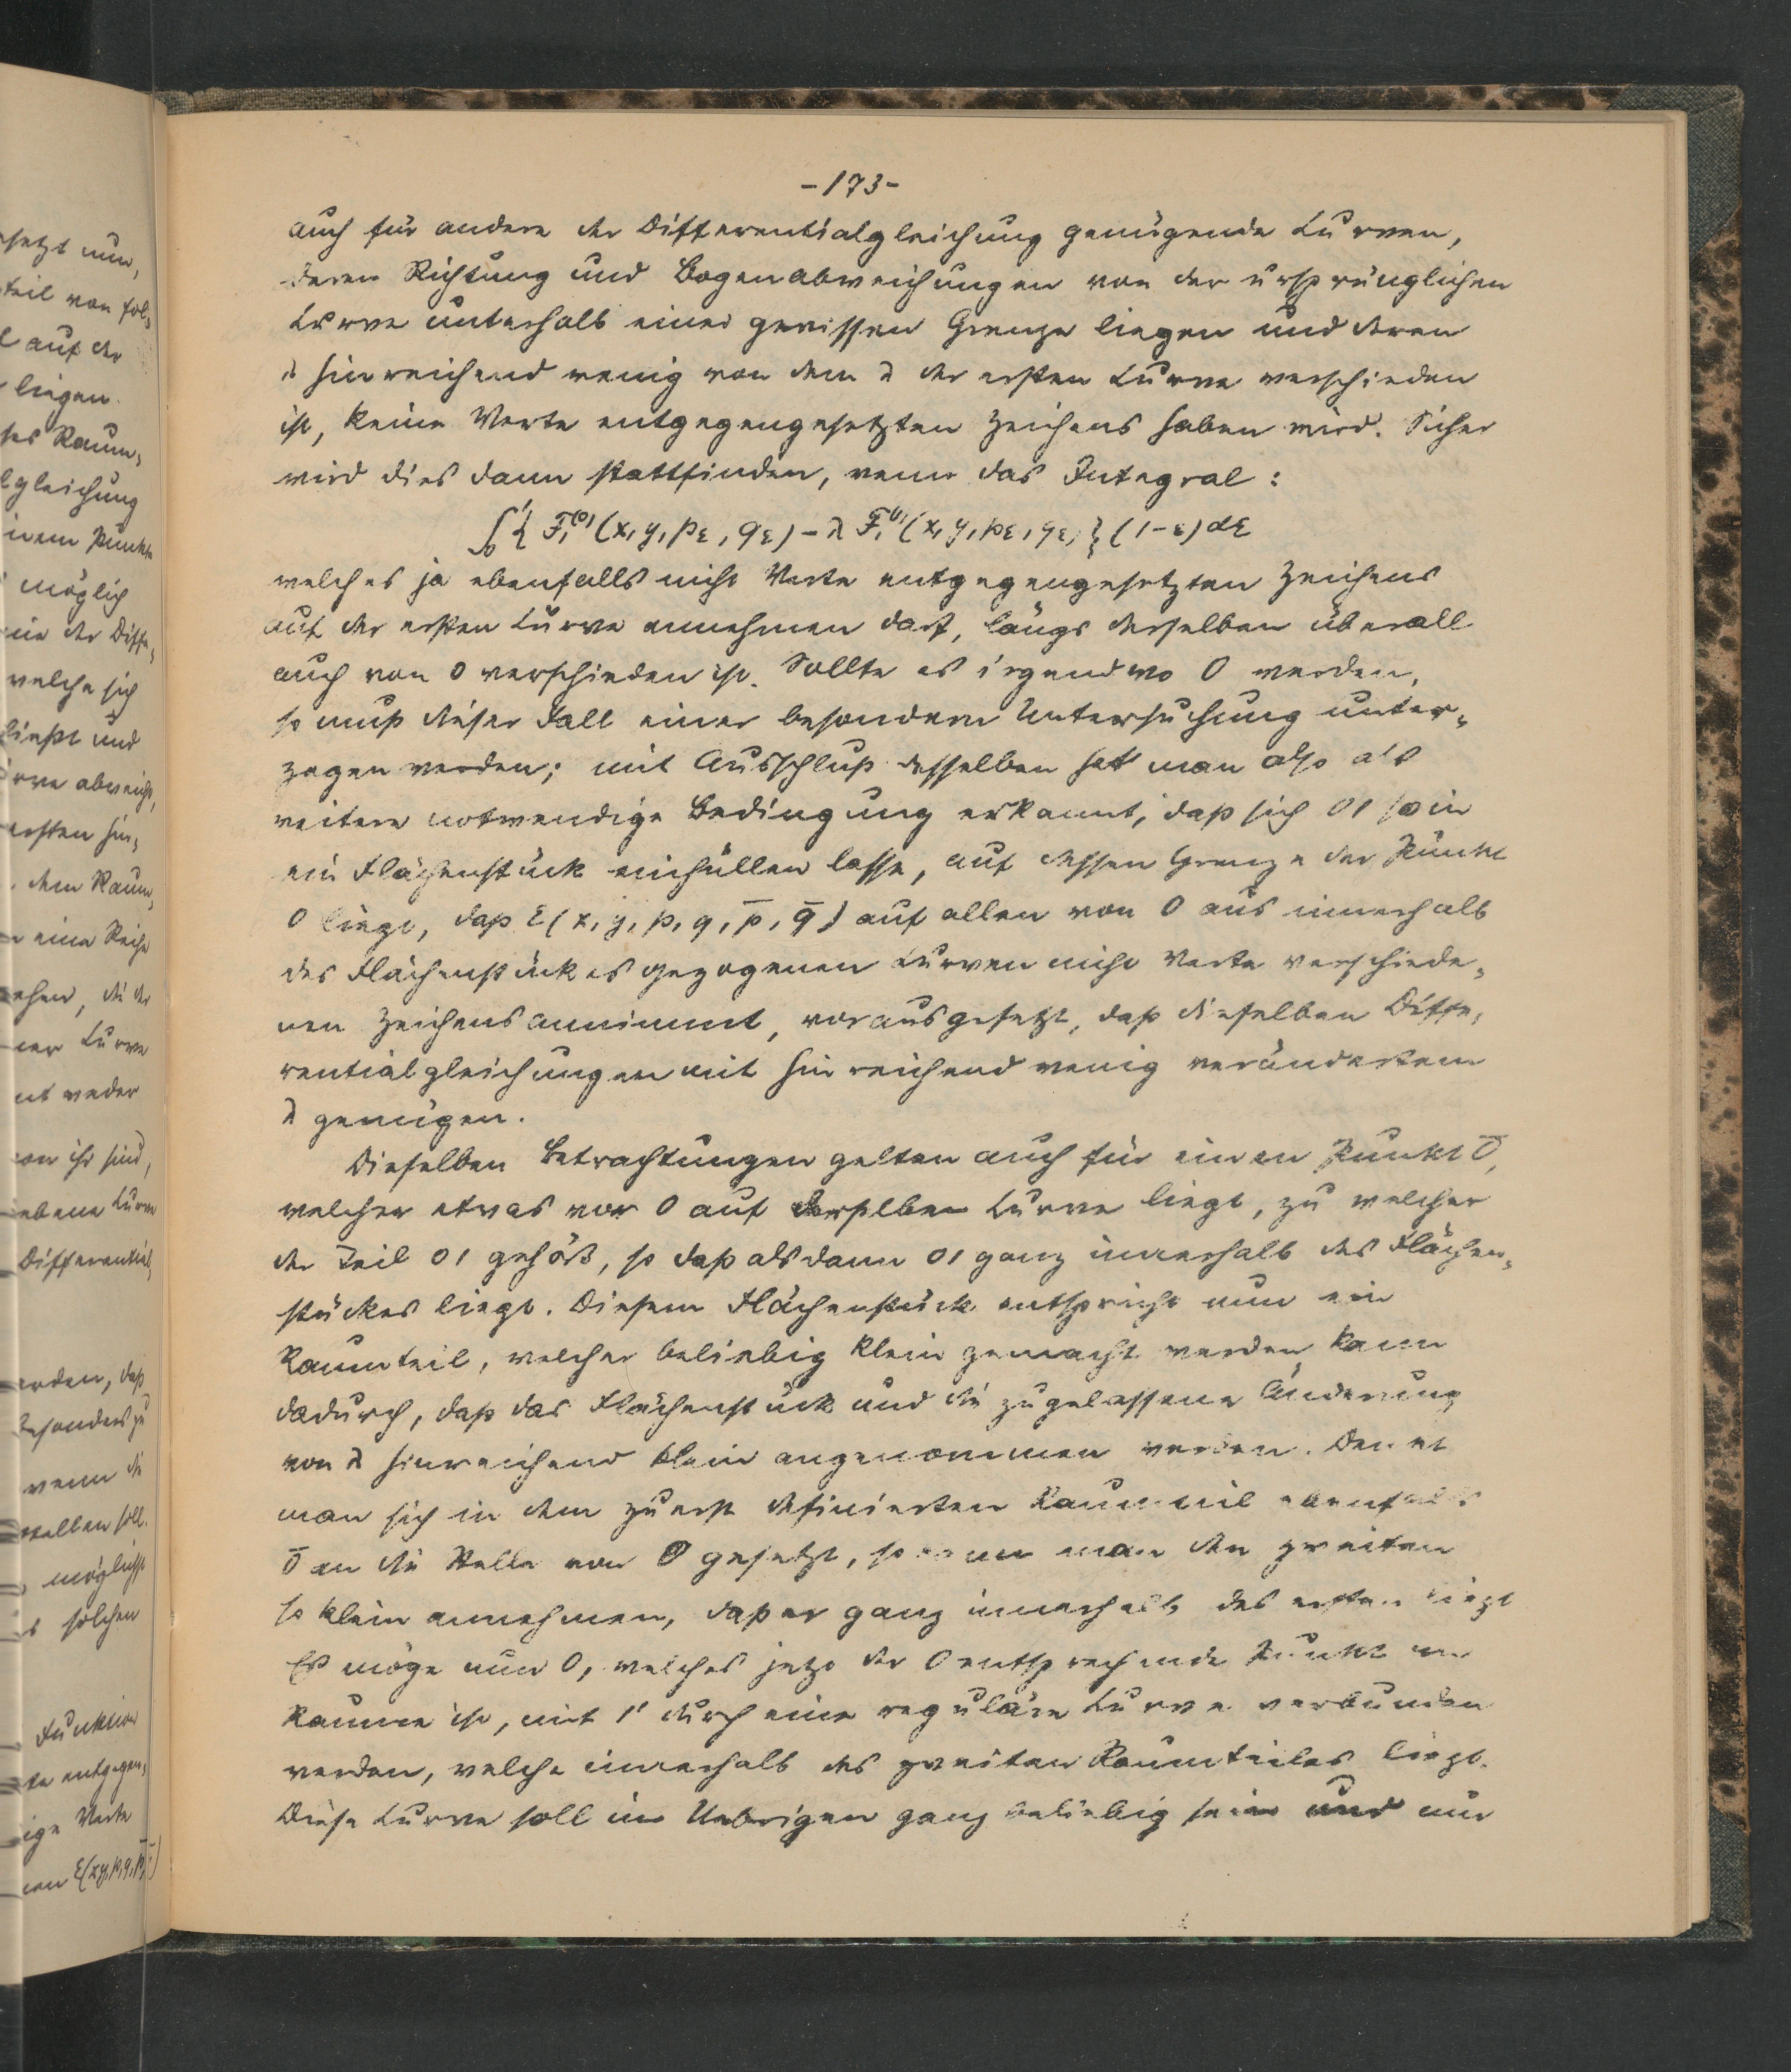 setzt nun,
teil von fol-
auf der
liegen.
ses Raum-
lgleichung
inem Punkte
möglich
ie der Diffe-
welche sich
ließt und
urve abweicht,
ersten hin-
dem Raum-
eine Reihe
ehen, die der
ner Kurve
nt weder
von ihr sind,
ebene Kurve
Differential-
erden, daß
besonders zu
wenn die
stellen soll.
möglichst
s solchen
Funktion
te entgegen-
ige Werte
von ℰ(x,y,p,q,p̄,q̄)
-173-
auch für andere der Differentialgleichung genügende Kurven,
deren Richtung und Bogenabweichungen von der ursprünglichen
Kurve unterhalb einer gewissen Grenze liegen und deren
λ hinreichend wenig von dem λ der ersten Kurve verschieden
ist, keine Werte entgegengesetzten Zeichens haben wird. Sicher
wird dies dann stattfinden, wenn das Integral:
∫₀¹{F₁⁽⁰⁾(x,y,p_ε,q_ε)-λF₁⁽¹⁾(x,y,p_ε,q_ε)}(1-ε)dε
welches ja ebenfalls nicht Werte entgegengesetzten Zeichens
auf der ersten Kurve annehmen darf, längs derselben überall
auch von 0 verschieden ist. Sollte es irgendwo 0 werden,
so muß dieser Fall einer besondern Untersuchung unter-
zogen werden; mit Ausschluß desselben hat man also als
weitere notwendige Bedingung erkannt, daß sich 01 so in
ein Flächenstück einhüllen lasse, auf dessen Grenze der Punkt
0 liegt, daß ℰ(x,y,p,q,p̄,q̄) auf allen von 0 aus innerhalb
des Flächenstückes gezogenen Kurven nicht Werte verschiede-
nen Zeichens annimmt, vorausgesetzt, daß dieselben Diffe-
rentialgleichungen mit hinreichend wenig verändertem
λ genügen.
Dieselben Betrachtungen gelten auch für einen Punkt 0̄,
welcher etwas vor 0 auf derselben Kurve liegt, zu welcher
der Teil 01 gehört, so daß alsdann 01 ganz innerhalb des Flächen-
stückes liegt. Diesem Flächenstück entspricht nun ein
Raumteil, welcher beliebig klein gemacht werden kann
dadurch, daß das Flächenstück und die zugelassene Änderung
von λ hinreichend klein angenommen werden. Denkt
man sich in dem zuerst definierten Raumteil ebenfalls
0̄ an die Stelle von 0 gesetzt, so kann man den zweiten
so klein annehmen, daß er ganz innerhalb des ersten liegt
Es möge nun 0, welches jetzt der 0 entsprechende Punkt im
Raume ist, mit 1' durch eine reguläre Kurve verbunden
werden, welche innerhalb des zweiten Raumteiles liegt.
Diese Kurve soll im Uebrigen ganz beliebig sein und nur